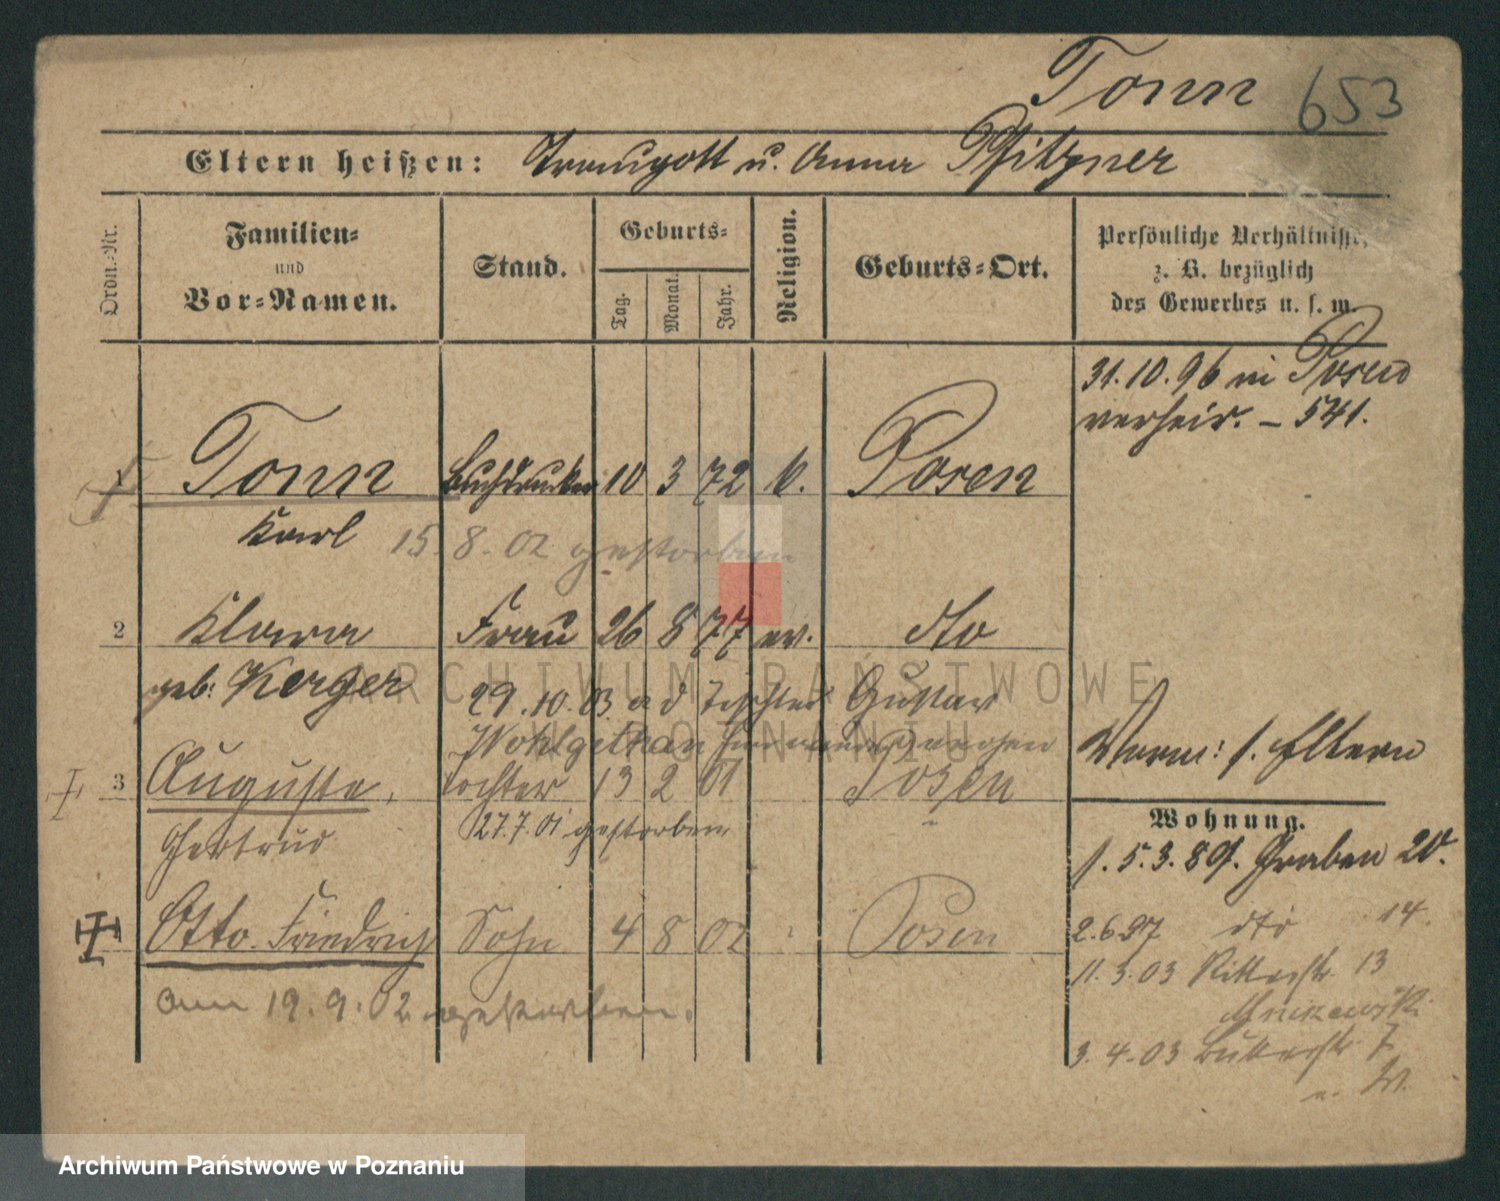 Tonn 653
Eltern heißen: Traugott u. Anna Pfitzner
Ordn.-Nr.
Familien-
und
Vor-Namen.
Stand.
Geburts-
Tag.
Monat.
Jahr.
Religion.
Geburts-Ort.
Persönliche Verhältnisse,
z. B. bezüglich
des Gewerbes u. s. w.
31.10.96 in Posen
verheir. – 541.
1 Tonn Buchdrucker 10 3 72 k. Posen
Karl 15.8.02 gestorben
2 Klara Frau 26 8 77 ev. dto
geb. Kerger
29.10.03 Tischler Gustav
Wohlgethan
3 Auguste, Tochter 13 2 01 Posen
Gertrud 27.7.01 gestorben
Otto Friedrich Sohn 4 8 02 Posen
am 19.9.02 gestorben.
Vorm: s. Eltern
Wohnung.
s. 5.3.89. Graben 20.
2.6.97 dto 14.
11.3.03 Ritterstr. 13
3.4.03 7
n. W.
ARCHIWUM PAŃSTWOWE
W POZNANIU
Archiwum Państwowe w Poznaniu